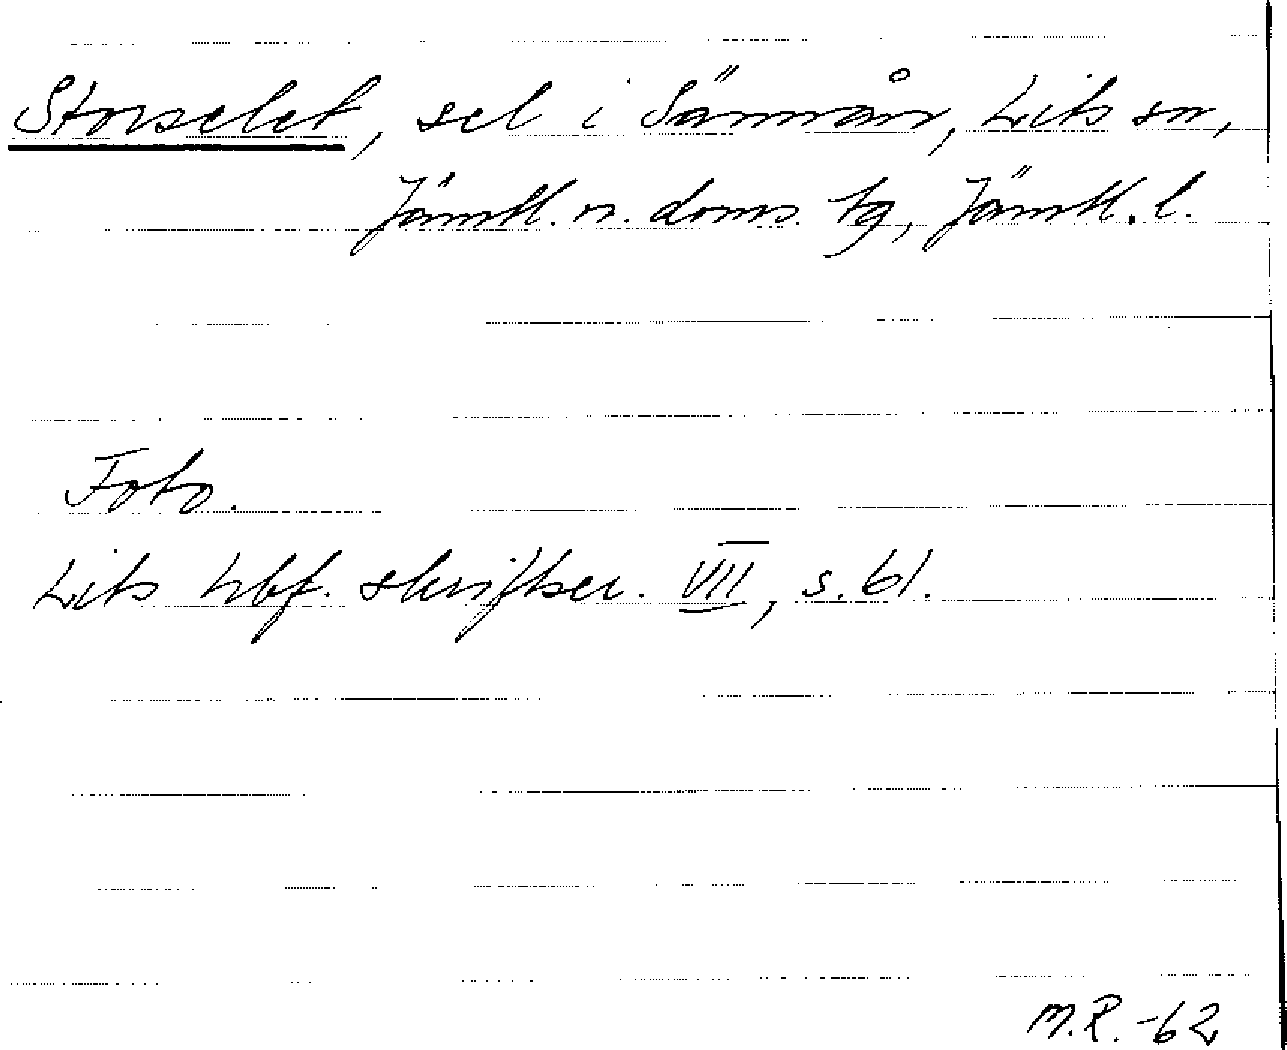 Storselet, sel i Sännån, Lits sn,
Jämtl. n. doms. tg, Jämtl. l.
Foto.
Lits hbf. skriftser. VIII, s. 61.
M.R. -62